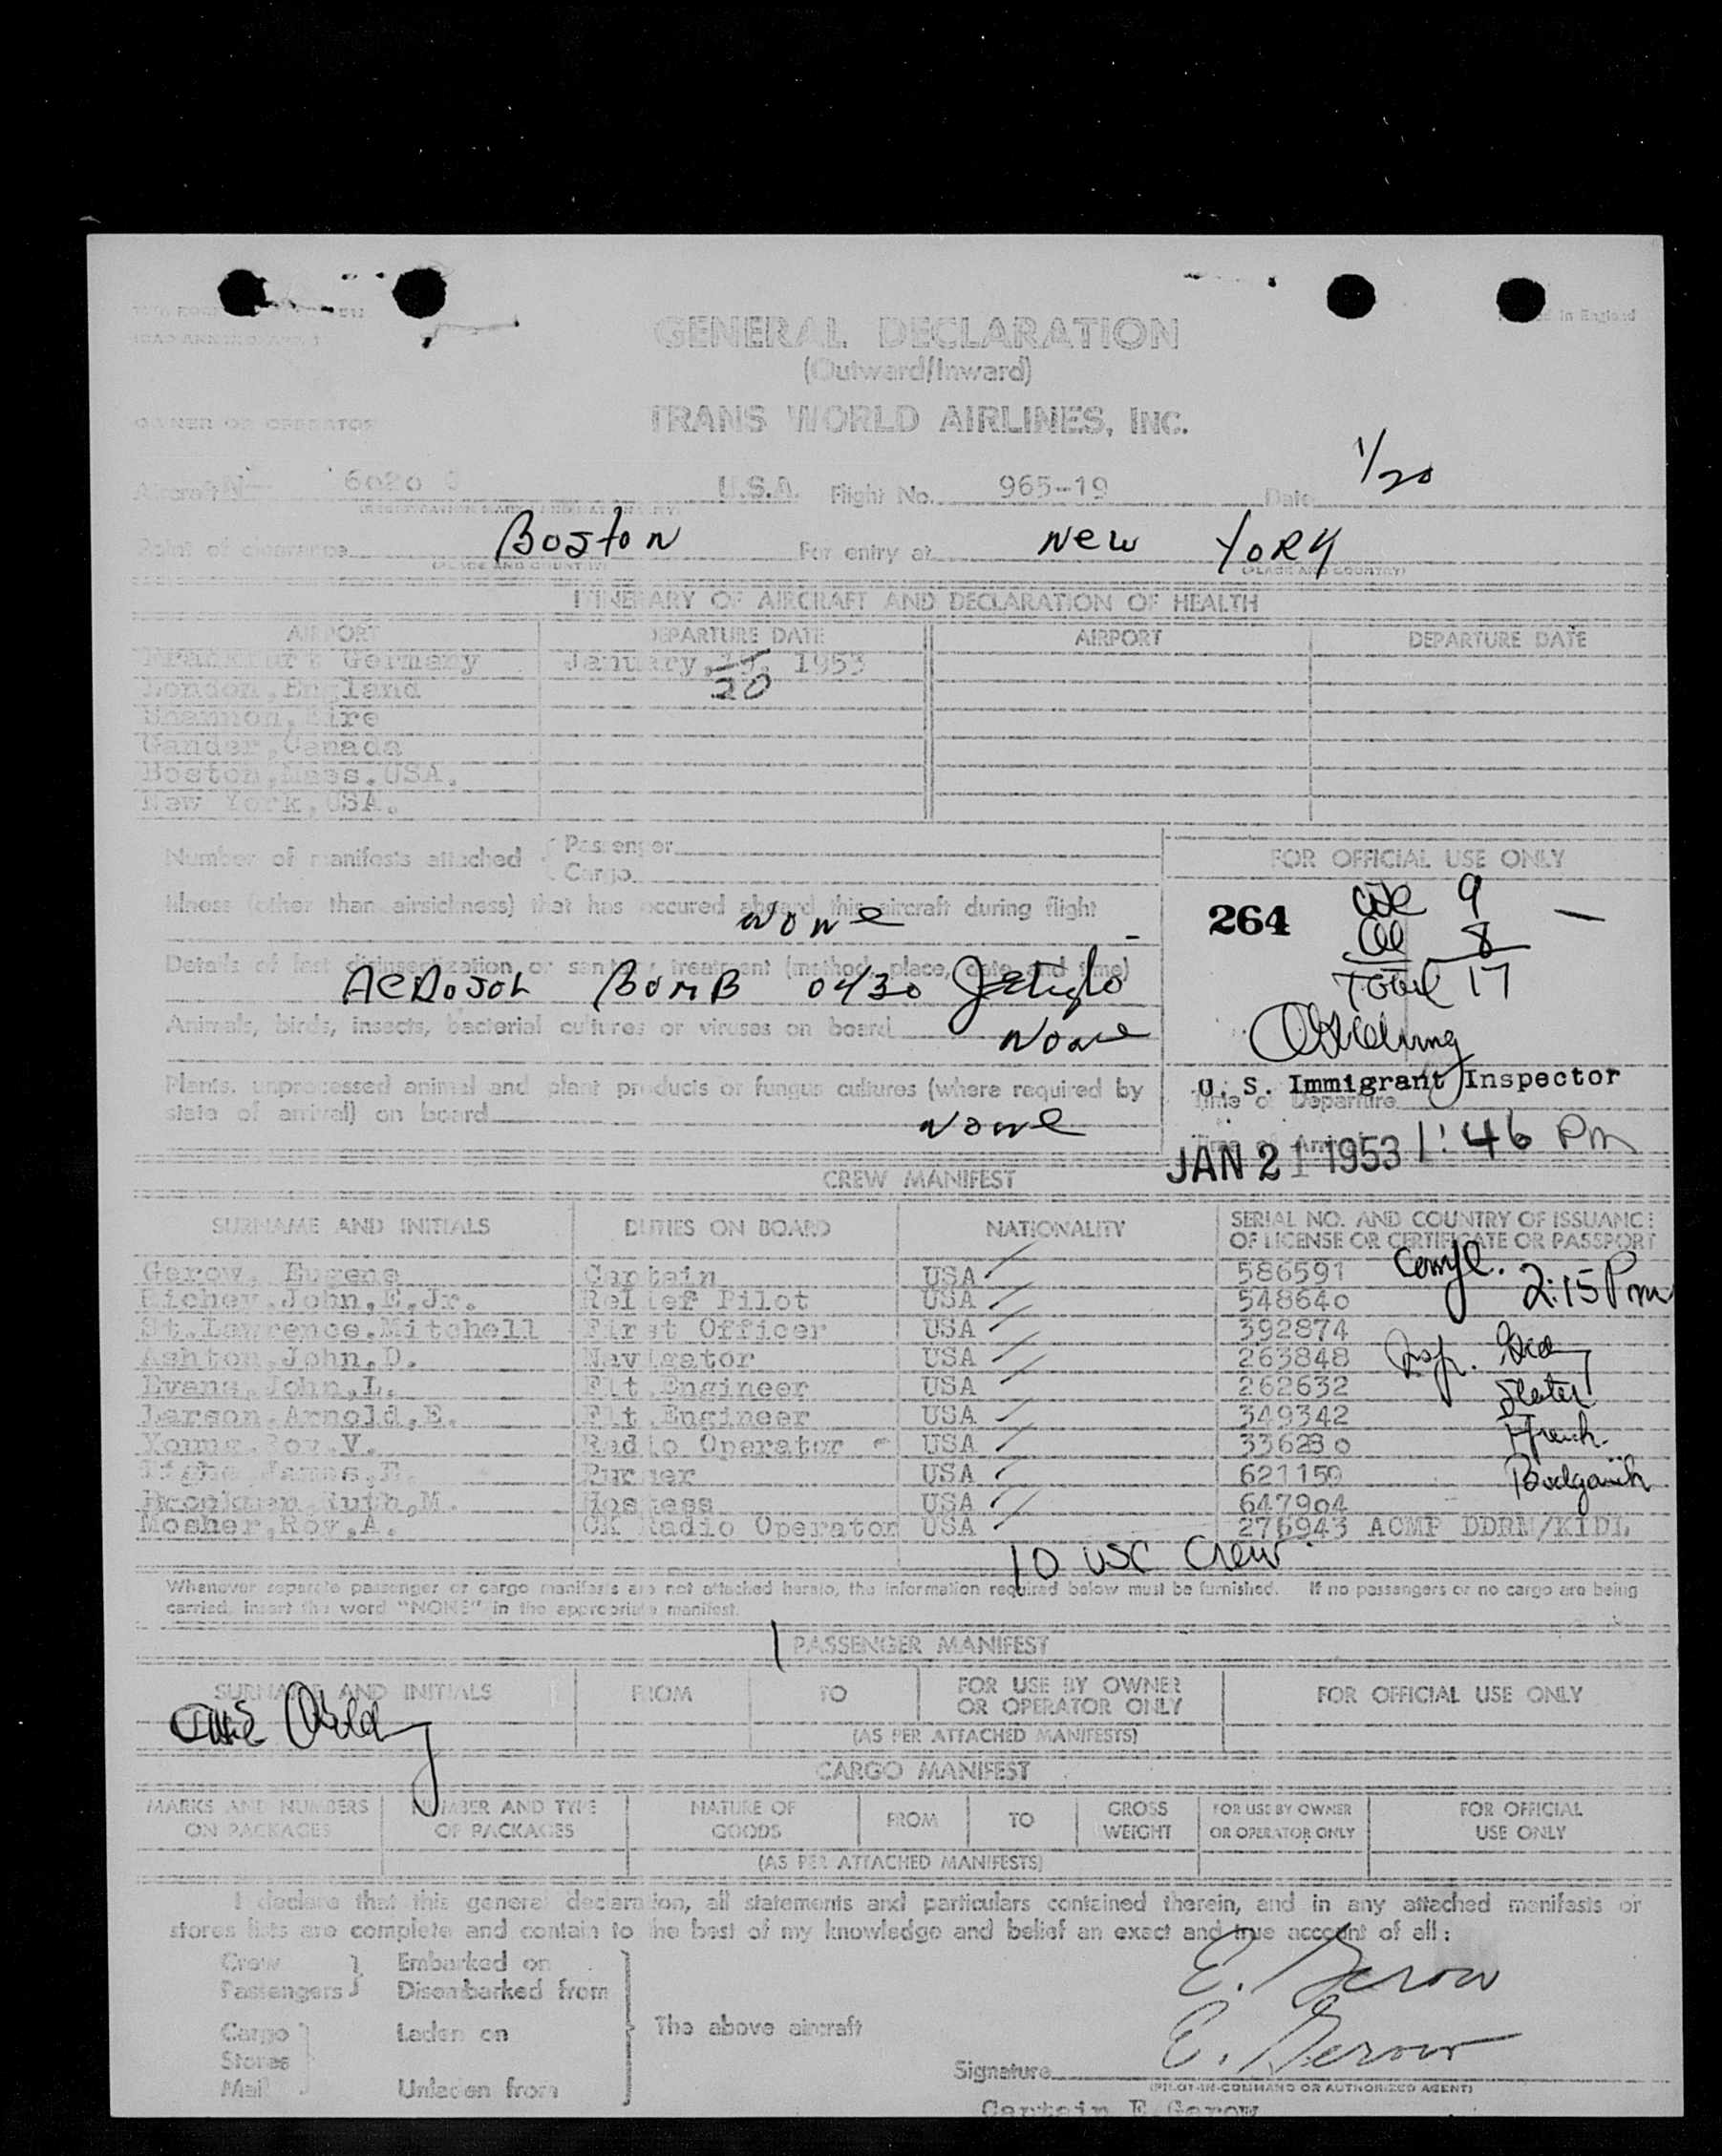 in England
GENERAL DECLARATION
(Outward/Inward)
OWNER OR OPERATOR
TRANS WORLD AIRLINES, INC.
1/20
Aircraft N— 6020 C U.S.A. Flight No. 965-19 Date
Point of clearance Boston For entry at New York
(PLACE AND COUNTRY) (PLACE AND COUNTRY)
ITINERARY OF AIRCRAFT AND DECLARATION OF HEALTH
AIRPORT DEPARTURE DATE AIRPORT DEPARTURE DATE
Frankfurt Germany January, 19, 1953
London, England 20
Shannon, Eire
Gander, Canada
Boston, Mass. USA.
New York, USA.
Number of manifests attached { Passenger
Cargo
FOR OFFICIAL USE ONLY
Illness (other than airsickness) that has occured aboard this aircraft during flight
None
264 9
8
Total 17
Details of last disinsectization or sanitary treatment (method, place, date and time)
AeRosol BomB 0430
Animals, birds, insects, bacterial cultures or viruses on board None
Plants, unprocessed animal and plant products or fungus cultures (where required by
state of arrival) on board None
U. S. Immigrant Inspector
Time of Departure
Time of Arrival
JAN 21 1953 1:46 Pm
CREW MANIFEST
SURNAME AND INITIALS DUTIES ON BOARD NATIONALITY SERIAL NO. AND COUNTRY OF ISSUANCE
OF LICENSE OR CERTIFICATE OR PASSPORT
Gerow, Eugene Captain USA 586591
Richey, John, E, Jr. Relief Pilot USA 548640 2:15 Pm
St. Lawrence, Mitchell First Officer USA 392874
Ashton, John, D. Navigator USA 263848 Insp.
Evans, John, L. Flt. Engineer USA 262632 Slater
Larson, Arnold, E. Flt. Engineer USA 349342
Young, Roy, V. Radio Operator USA 336280 French
James, Purser USA 621150
Ruth, M. Hostess USA 647904
Mosher, Roy, A. CK Radio Operator USA 276943 ACMP
10 USC Crew
Whenever separate passenger or cargo manifests are not attached hereto, the information required below must be furnished. If no passengers or no cargo are being
carried, insert the word "NONE" in the appropriate manifest.
PASSENGER MANIFEST
SURNAME AND INITIALS FROM TO FOR USE BY OWNER
OR OPERATOR ONLY FOR OFFICIAL USE ONLY
(AS PER ATTACHED MANIFESTS)
CARGO MANIFEST
MARKS AND NUMBERS
ON PACKAGES NUMBER AND TYPE
OF PACKAGES NATURE OF
GOODS FROM TO GROSS
WEIGHT FOR USE BY OWNER
OR OPERATOR ONLY FOR OFFICIAL
USE ONLY
(AS PER ATTACHED MANIFESTS)
I declare that this general declaration, all statements and particulars contained therein, and in any attached manifests or
stores lists are complete and contain to the best of my knowledge and belief an exact and true account of all:
Crew Embarked on
Passengers Disembarked from
E. Gerow
Cargo Laden on
The above aircraft
Stores
E. Gerow
Mail Unladen from
Signature
(PILOT-IN-COMMAND OR AUTHORIZED AGENT)
Captain E. Gerow